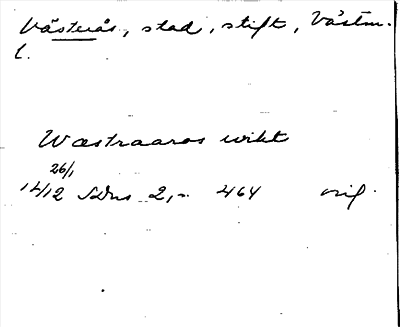 Västerås, stad, stift, Västm.
l.
Wæstraaros wikt
26/1
1412 SDns 2, 464 orig.